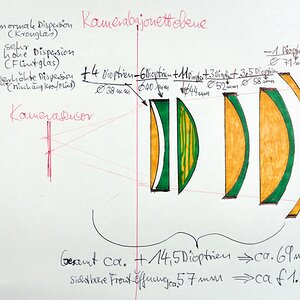 Kamerabajonettebene
normale Dispersion
(Kronglas)
sehr
hohe Dispersion
(Flintglas)
erhöhte Dispersion
- 1 Dioptrien
± 4 Dioptrien - 6 Dioptrien + 11 Dioptrien + 3 Dioptr. + 3,5 Dioptrien
⌀ 38 mm ⌀ 40 mm ⌀ 44 mm ⌀ 52 mm ⌀ 58 mm ⌀ 71 m
Kamerasensor
Gesamt ca. + 14,5 Dioptrien ⇒ ca. 69 m
sichtbare Frontöffnung ca 57 mm ⇒ ca f 1.